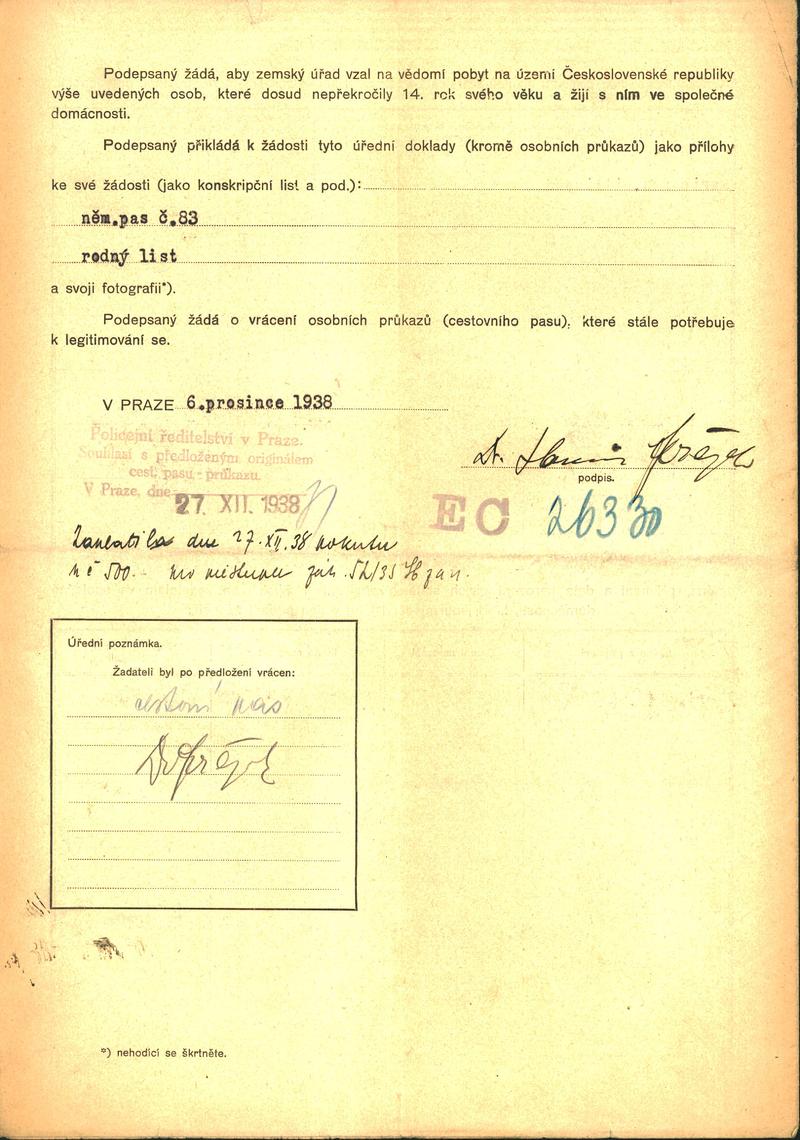 Podepsaný žádá, aby zemský úřad vzal na vědomí pobyt na území Československé republiky
výše uvedených osob, které dosud nepřekročily 14. rok svého věku a žijí s ním ve společné
domácnosti.
Podepsaný přikládá k žádosti tyto úřední doklady (kromě osobních průkazů) jako přílohy
ke své žádosti (jako konskripční list a pod.):
něm.pas č.83
rodný list
a svoji fotografii*).
Podepsaný žádá o vrácení osobních průkazů (cestovního pasu), které stále potřebuje
k legitimování se.
V PRAZE 6.prosince 1938
Policejní ředitelství v Praze.
Souhlasí s předloženým originálem
cest. pasu - průkazu.
V Praze, dne
27. XII. 1938
Dr.
podpis.
EC 26330
Zaplatila dne 27.XII.38 pokutu
Kč 500.- pro 52/35 Sb z a n.
Úřední poznámka.
Žadateli byl po předložení vrácen:
cestovní pas
*) nehodící se škrtněte.